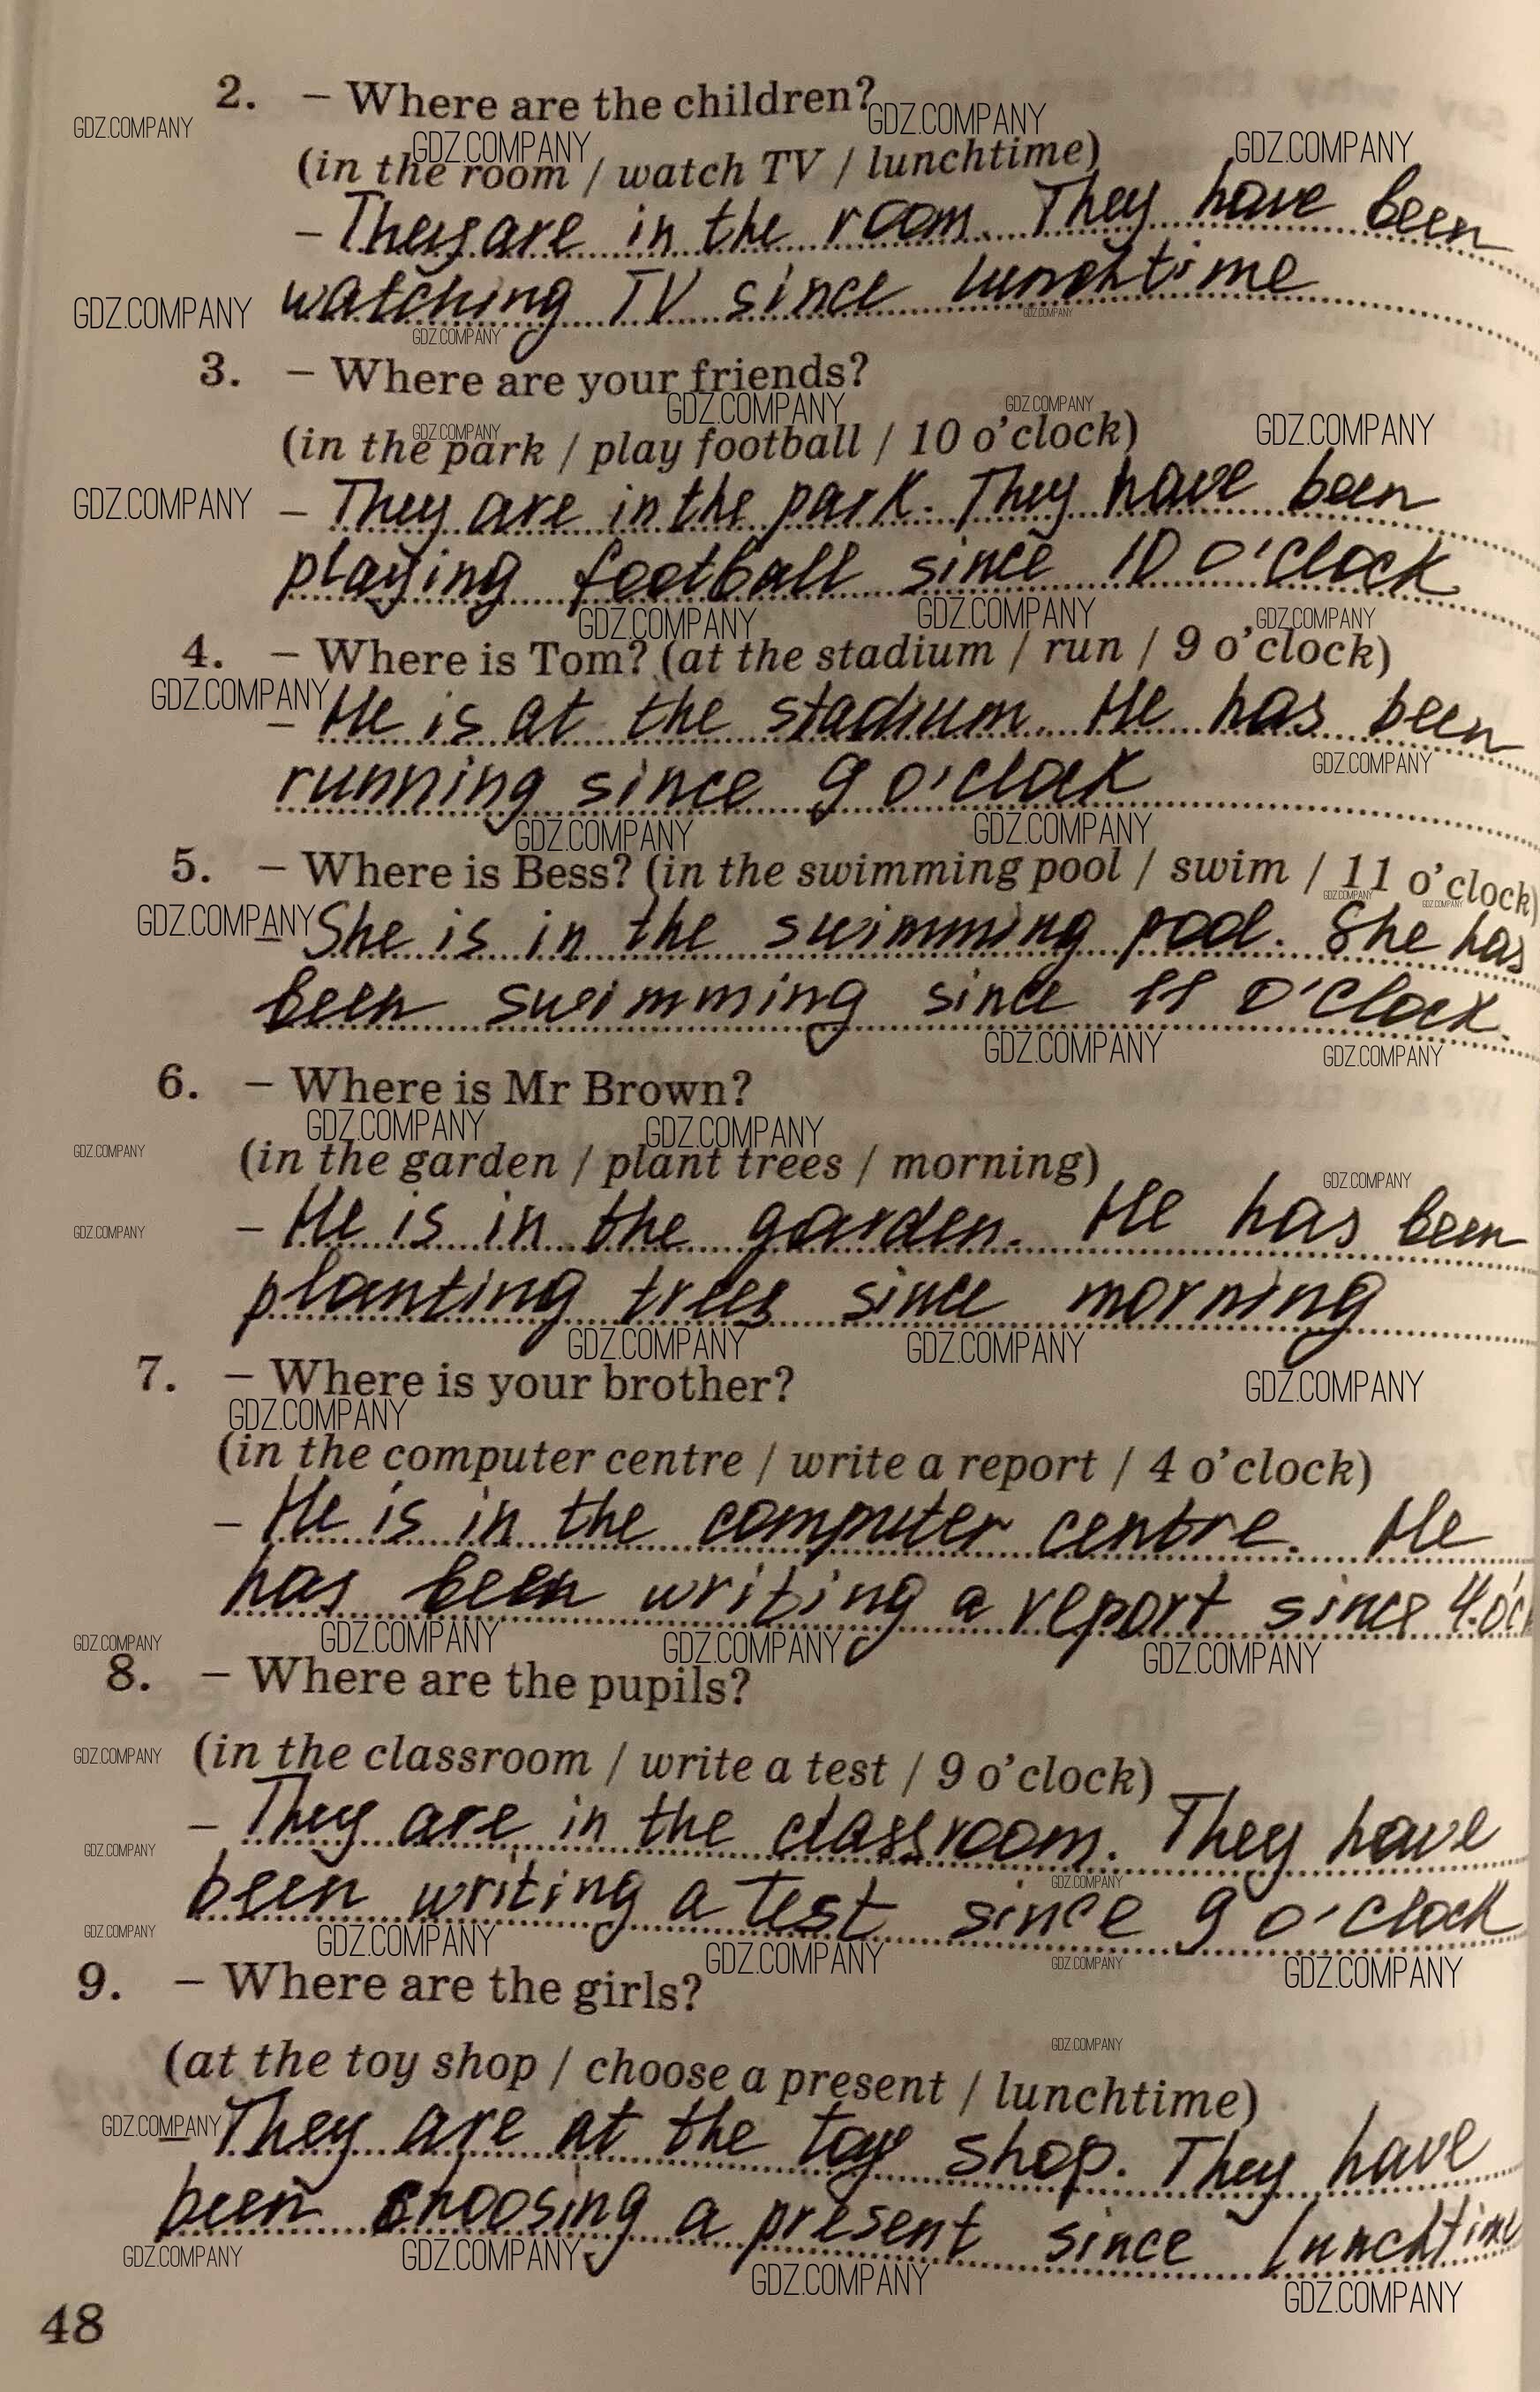 2. – Where are the children?
(in the room / watch TV / lunchtime)
– They are in the room. They have been
watching TV since lunchtime
3. – Where are your friends?
(in the park / play football / 10 o'clock)
– They are in the park. They have been
playing football since 10 o'clock
4. – Where is Tom? (at the stadium / run / 9 o'clock)
– He is at the stadium. He has been
running since 9 o'clock
5. – Where is Bess? (in the swimming pool / swim / 11 o'clock)
– She is in the swimming pool. She has
been swimming since 11 o'clock.
6. – Where is Mr Brown?
(in the garden / plant trees / morning)
– He is in the garden. He has been
planting trees since morning
7. – Where is your brother?
(in the computer centre / write a report / 4 o'clock)
– He is in the computer centre. He
has been writing a report since 4 o'cl
8. – Where are the pupils?
(in the classroom / write a test / 9 o'clock)
– They are in the classroom. They have
been writing a test since 9 o'clock
9. – Where are the girls?
(at the toy shop / choose a present / lunchtime)
– They are at the toy shop. They have
been choosing a present since lunchtime
48
GDZ.COMPANY